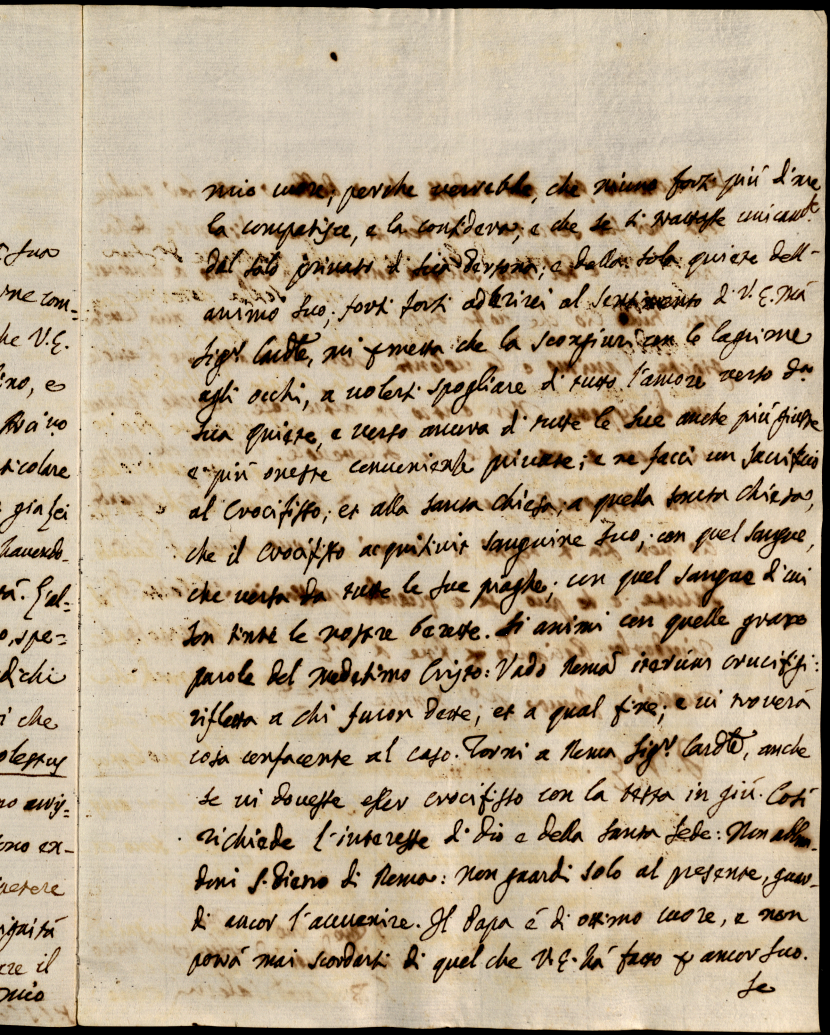 sua
me com=
he V.E.
ino, e
ticolare
già sei
havendo-
tà. L'al=
o, spe=
di chi
i che
olestus
no avvi=
ono ex-
ignità
re il
mio
mio cuore; perche vorrebbe, che niuno forsi più di me
la compatisce, e la considera; e che se si trattasse unicamte
del solo privato di sua Persona, e della sola quiete dell'
animo suo; forsi forsi adherirei al sentimento di V.E. Mà
Sigr Cardle, mi permetta che la scongiuri con le lagrime
agli occhi, a volersi spogliare di tutto l'amore verso da
sua quiete, e verso ancora di tutte le sue anche più giuste
e più oneste convenienze private; e ne facci un sacrificio
al Crocifisso; et alla santa Chiesa; a quella santa Chiesa,
che il Crocifisso acquisivit sanguine suo; con quel sangue,
che versa da tutte le sue piaghe; con quel sangue di cui
son tinte le nostre berette. Si animi con quelle grave
parole del medesimo Cristo: Vado Romã iterum crucifigi:
rifletta a chi furon dette, et a qual fine; e vi troverà
cosa confacente al caso. Torni a Roma Sigr Cardle, anche
se vi dovesse esser crocifisso con la testa in giù. Così
richiede l'interesse di Dio e della Santa Sede: Non abban-
doni S. Pietro di Roma: non guardi solo al presente, guar-
di ancor l'avvenire. Il Papa è di ottimo cuore, e non
potrà mai scordarsi di quel che V.E. hà fatto p amor suo.
Se